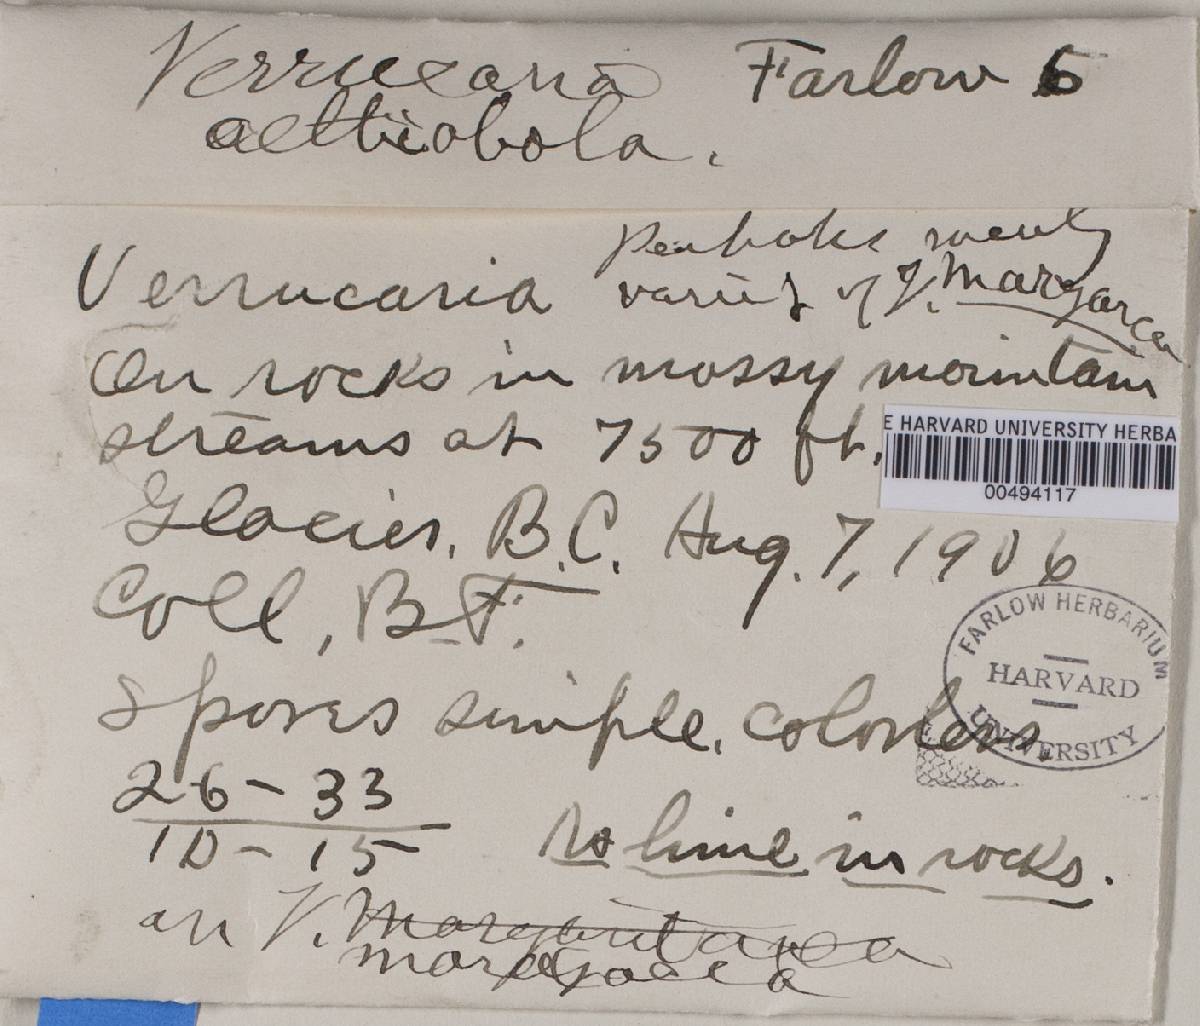 Verrucaria Farlow 6
aethiobola.
Verrucaria
variety of V. Margacea
On rocks in mossy mountain
streams at 7500 ft.
E HARVARD UNIVERSITY HERBA
00494117
Glacier, B.C. Aug. 7, 1906
Coll, B.F.
FARLOW HERBARIUM
HARVARD
UNIVERSITY
Spores simple, colorless
26-33
10-15 No lime in rocks.
an V. Margaritacea
margacea